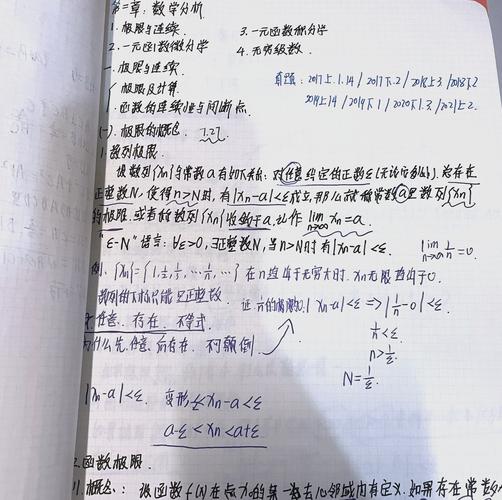 第一章：数学分析
1. 极限与连续. 3. 一元函数积分学
2. 一元函数微分学 4. 无穷级数.
一. 极限与连续.
极限及计算.
函数的连续性与间断点.
真题：2017上1.14 / 2017下.2 / 2018上3 / 2018下2
2019上14 / 2019下1 / 2020下1.3 / 2021上2.
(一). 极限的概念. 7.27.
1. 数列极限.
设数列{xn}与常数a有如下关系：对任意给定的正数ε(无论应多么小), 总存在
正整数N, 使得n>N时, 有|xn-a|<ε成立, 那么就称常数a是数列{xn}
的极限, 或者称数列{xn}收敛于a, 记作 lim n→∞ xn=a.
"ε-N"语言：∀ε>0, ∃正整数N, 当n>N时有|xn-a|<ε. lim n→∞ 1/n=0.
例. {xn}={1, 1/2, 1/3, … 1/n, …} 在n趋向于无穷大时. xn无限趋向于0.
数列的下标只能是正整数. 证 1/n的极限为0. |xn-a|<ε ⇒ |1/n-0|<ε.
任意. 存在. 不等式
为什么先任意, 后存在. 不可颠倒.
1/n<ε.
n>1/ε.
N=1/ε.
|xn-a|<ε. 变形 -ε<xn-a<ε
a-ε<xn<a+ε
2. 函数极限.
1. 概念：设函数f(x)在点x0的某一去心邻域内有定义. 如果存在常数